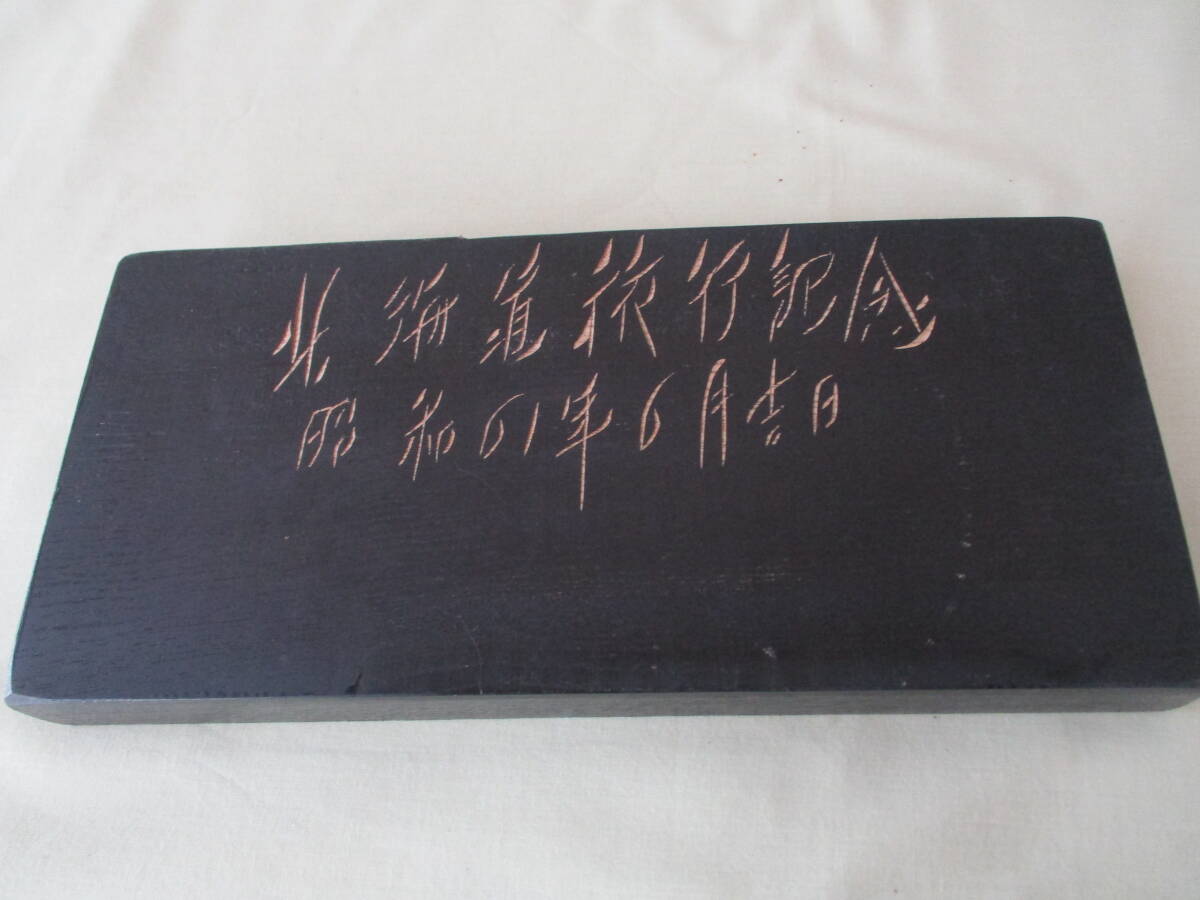 北海道旅行記念
昭和61年6月吉日